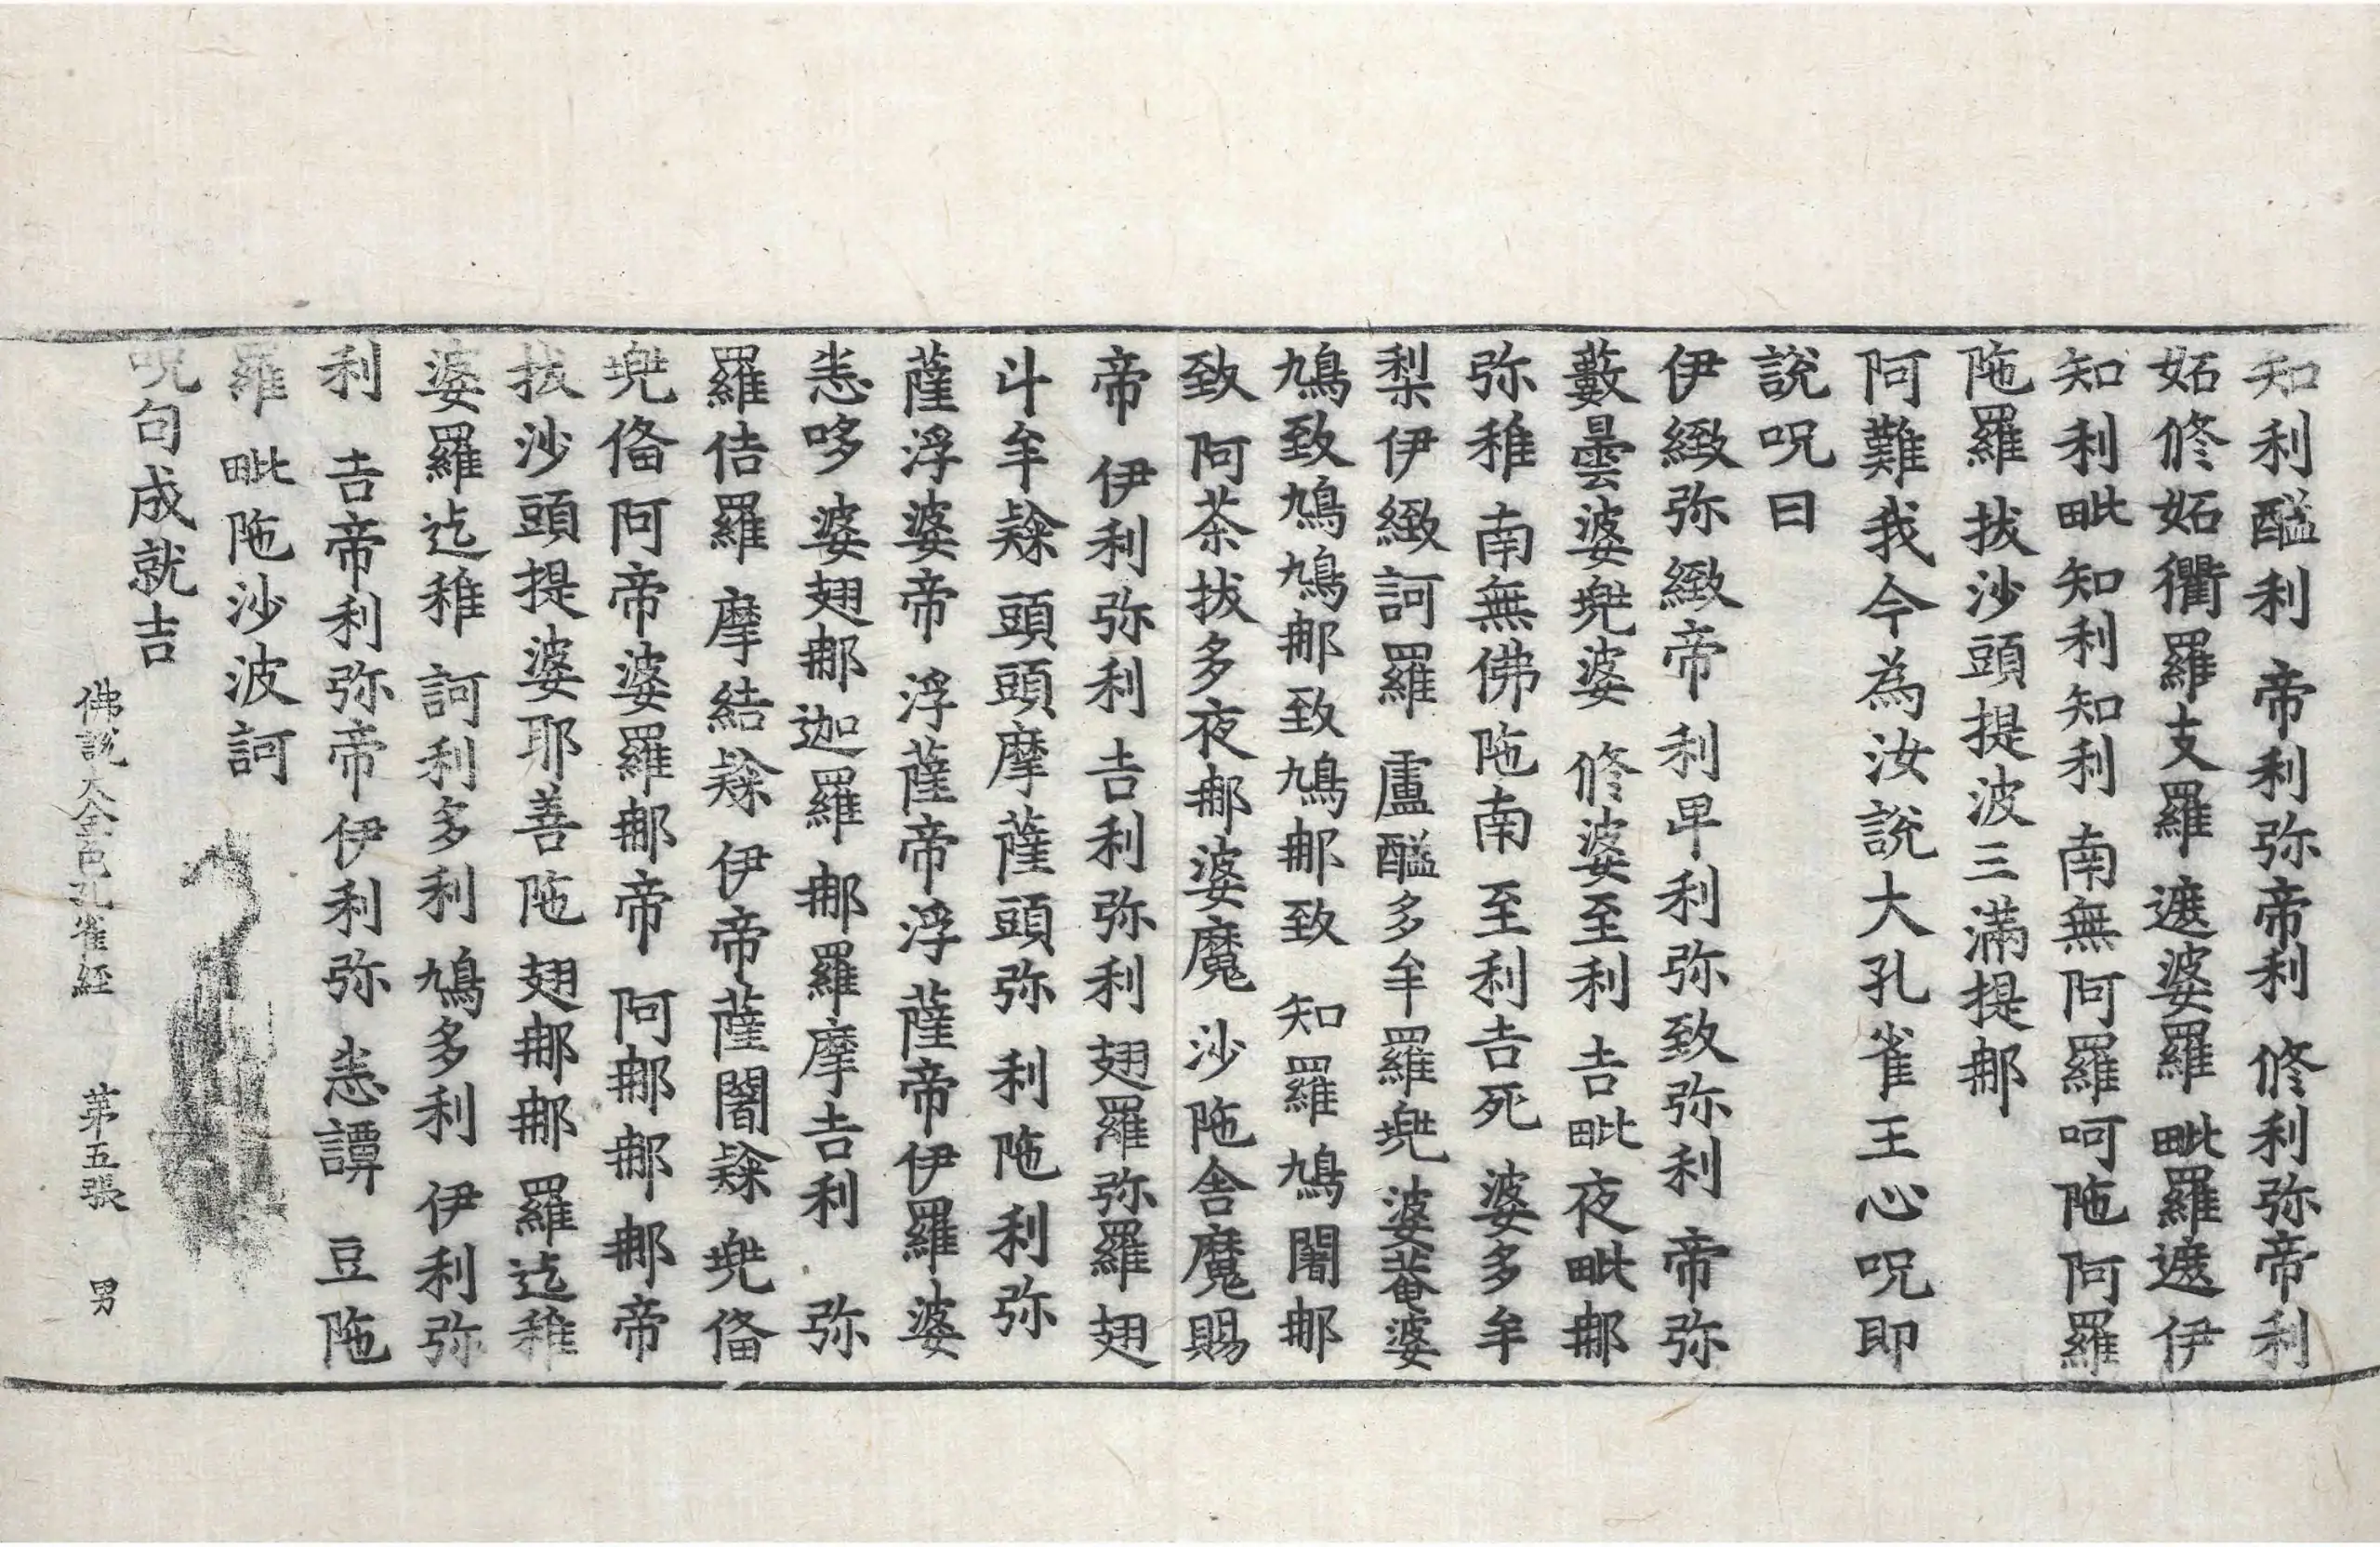 知利醯利 帝利弥帝利 修利弥帝利
妬修妬衢羅支羅 遮婆羅 毗羅遮 伊
知利毗知利知利 南無阿羅呵陁阿羅
陁羅 拔沙頭提波三滿提𨚗
阿難我今為汝說大孔雀王心呪即
說呪曰
伊緻弥緻帝 利卑利弥致弥利 帝弥
藪曇婆兠婆 修婆至利 𠮷毗夜毗𨚗
弥稚 南無佛陁南 至利𠮷死 婆多牟
梨伊緻 訶羅 盧醯多牟羅兠 婆菴婆
鳩致鳩鳩𨚗致鳩𨚗致 知羅鳩闍𨚗
致 阿茶拔多夜𨚗婆魔 沙陁舍魔賜
帝 伊利弥利 𠮷利弥利 翅羅弥羅翅
斗牟㲚 頭頭摩薩頭弥 利陁利弥
薩浮婆帝 浮薩帝浮薩帝伊羅婆
恙哆 婆翅𨚗迦羅 𨚗羅摩𠮷利 弥
羅佶羅 摩結㲚 伊帝薩闍㲚 兠俻
兠俻阿帝婆羅𨚗帝 阿𨚗𨚗𨚗帝
拔沙頭提婆耶善陁 翅𨚗𨚗 羅迄稚
婆羅迄稚 訶利多利 鳩多利 伊利弥
利 𠮷帝利弥帝伊利弥 恙譚 豆陁
羅 毗陁沙波訶
呪句成就吉
佛說大金色孔雀經 苐五張 男